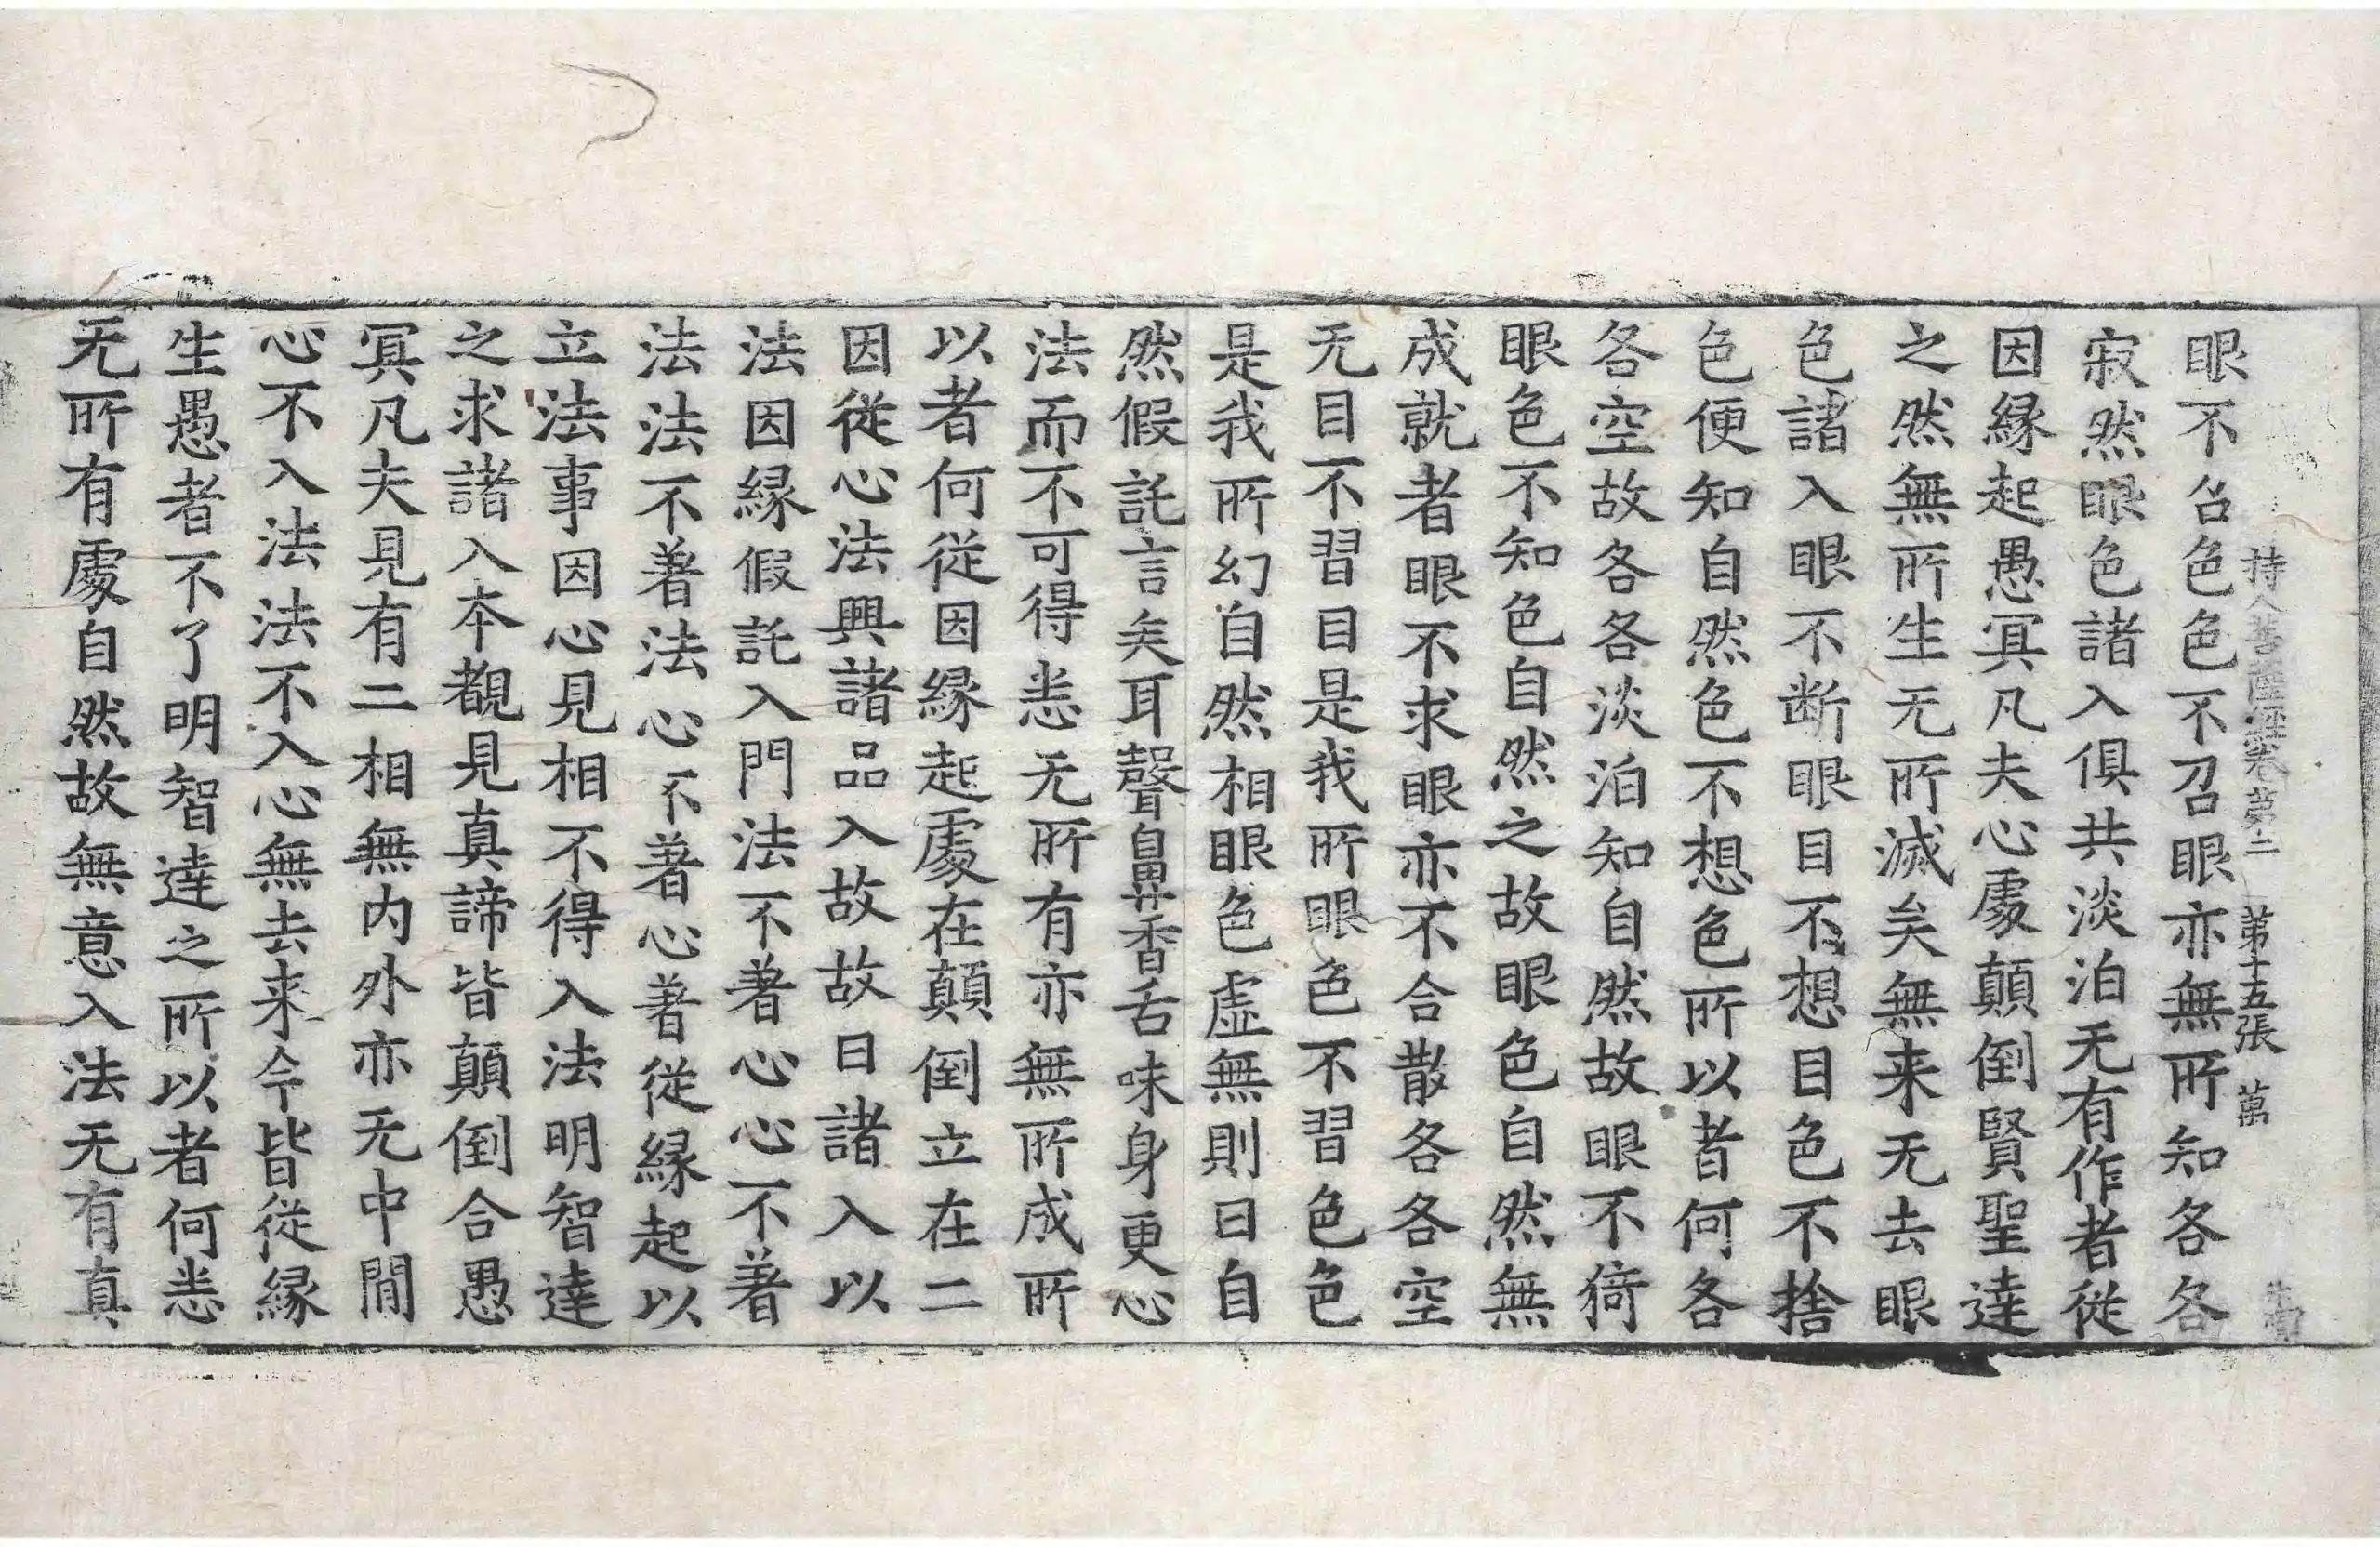 持人菩薩經卷第二 第十五張 萬
眼不召色色不召眼亦無所知各各
寂然眼色諸入俱共淡泊无有作者從
因緣起愚冥凡夫心處顛倒賢聖達
之然無所生无所滅矣無来无去眼
色諸入眼不断眼目不想目色不捨
色便知自然色不想色所以者何各
各空故各各淡泊知自然故眼不猗
眼色不知色自然之故眼色自然無
成就者眼不求眼亦不合散各各空
无目不習目是我所眼色不習色色
是我所幻自然相眼色虛無則曰自
然假託言矣耳聲鼻香舌味身更心
法而不可得恙无所有亦無所成所
以者何從因緣起處在顛倒立在二
因從心法興諸品入故故曰諸入以
法因緣假託入門法不著心心不著
法法不著法心不著心著從緣起以
立法事因心見相不得入法明智達
之求諸入本覩見真諦皆顛倒合愚
冥凡夫見有二相無内外亦无中間
心不入法法不入心無去来今皆從緣
生愚者不了明智達之所以者何恙
无所有處自然故無意入法无有真